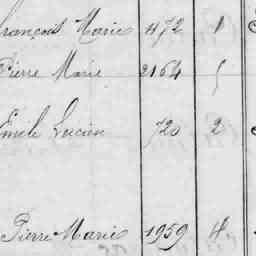 François Marie 1172 1
Pierre Marie 2164
Emile Lucien 720 2
Pierre Marie 1959 4